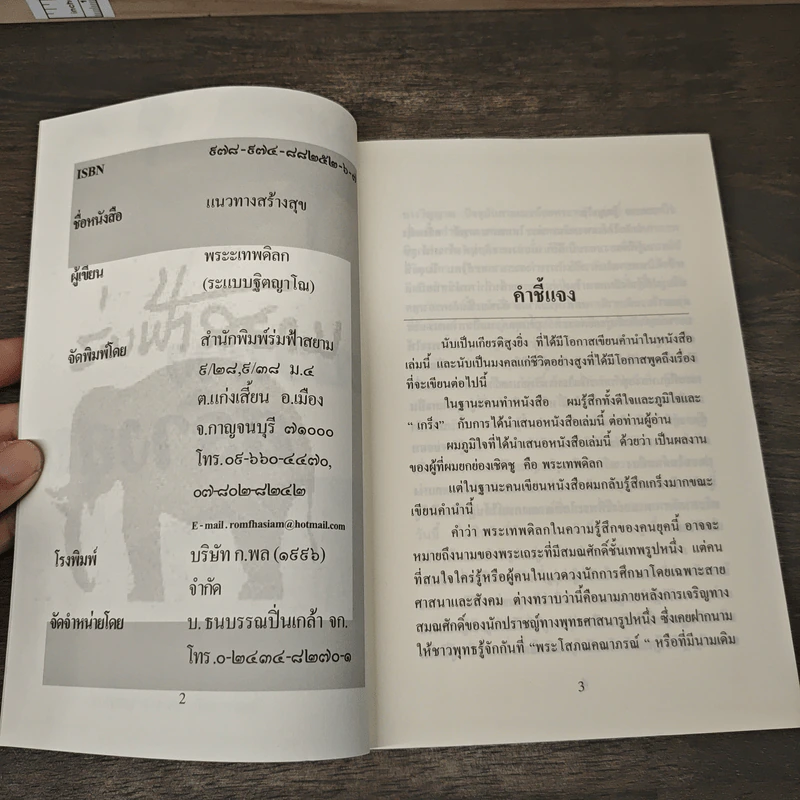 ISBN ๙๗๘-๙๗๔-๘๘๒๕๒-๖-
ชื่อหนังสือ แนวทางสร้างสุข
ผู้เขียน พระะเทพดิลก
(ระแบบฐิตญาโณ)
จัดพิมพ์โดย สำนักพิมพ์ร่มฟ้าสยาม
๙/๒๘,๙/๓๘ ม.๔
ต.แก่งเสี้ยน อ.เมือง
จ.กาญจนบุรี ๗๑๐๐๐
โทร.๐๙-๖๖๐-๔๔๗๐,
๐๗-๘๐๒-๘๒๔๒
E-mail.romfhasiam@hotmail.com
โรงพิมพ์ บริษัท ก.พล (๑๙๙๖)
จำกัด
จัดจำหน่ายโดย บ. ธนบรรณปิ่นเกล้า จก.
โทร.๐-๒๔๓๔-๘๒๗๐-๑
2
คำชี้แจง
นับเป็นเกียรติสูงยิ่ง ที่ได้มีโอกาสเขียนคำนำในหนังสือ
เล่มนี้ และนับเป็นมงคลแก่ชีวิตอย่างสูงที่ได้มีโอกาสพูดถึงเรื่อง
ที่จะเขียนต่อไปนี้
ในฐานะคนทำหนังสือ ผมรู้สึกทั้งดีใจและภูมิใจและ
“ เกร็ง” กับการได้นำเสนอหนังสือเล่มนี้ ต่อท่านผู้อ่าน
ผมภูมิใจที่ได้นำเสนอหนังสือเล่มนี้ ด้วยว่า เป็นผลงาน
ของผู้ที่ผมยกย่องเชิดชู คือ พระเทพดิลก
แต่ในฐานะคนเขียนหนังสือผมกลับรู้สึกเกร็งมากขณะ
เขียนคำนำนี้
คำว่า พระเทพดิลกในความรู้สึกของคนยุคนี้ อาจจะ
หมายถึงนามของพระเถระที่มีสมณศักดิ์ชั้นเทพรูปหนึ่ง แต่คน
ที่สนใจใคร่รู้หรือผู้คนในแวดวงนักการศึกษาโดยเฉพาะสาย
ศาสนาและสังคม ต่างทราบว่านี้คือนามภายหลังการเจริญทาง
สมณศักดิ์ของนักปราชญ์ทางพุทธศาสนารูปหนึ่ง ซึ่งเคยฝากนาม
ให้ชาวพุทธรู้จักกันที่ “พระโสภณคณาภรณ์ “ หรือที่มีนามเดิม
3